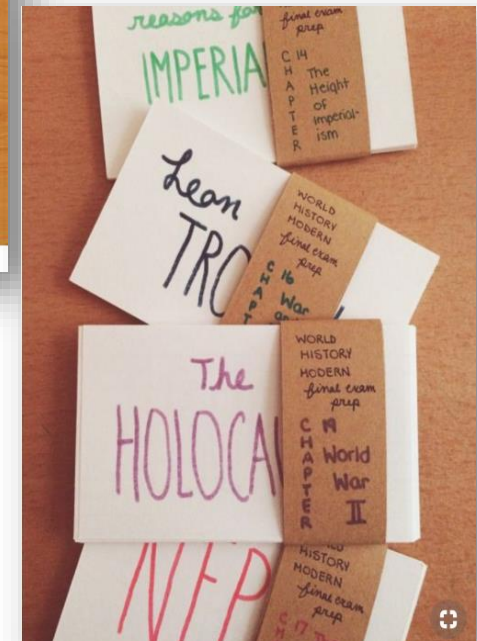 reasons for
IMPERIA
final exam
prep
CHAPTER
14
The
Height
of
Imperial-
ism
Leon
TRO
WORLD
HISTORY
MODERN
final exam
prep
CHAPT
16
War
The
HOLOCAU
WORLD
HISTORY
MODERN
final exam
prep
CHAPTER
19
World
War
II
NEP
HISTORY
MODERN
final exam
prep
17